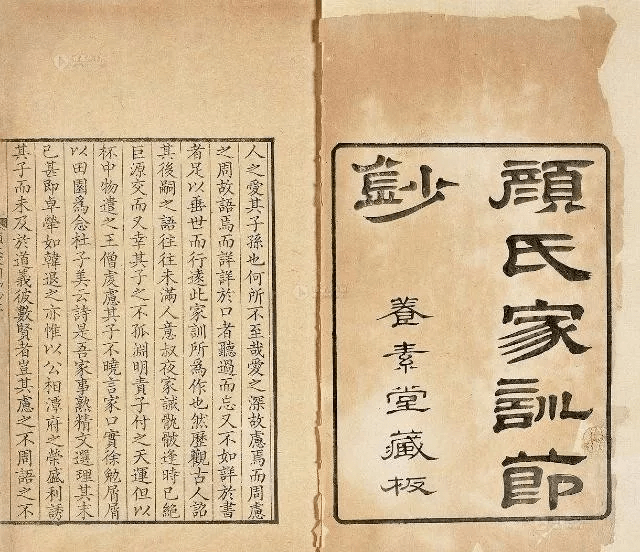 顏氏家訓節
鈔
養素堂藏板
人之愛其子孫也何所不至哉愛之深故慮焉而周慮
之周故語焉而詳詳於口者聽過而忘又不如詳於書
者足以垂世而行遠此家訓所爲作也然歷觀古人詒
其後嗣之語往往未滿人意叔夜家誡骫骳逢時已絕
巨源交而又幸其子之不孤淵明責子付之天運但以
杯中物遣之王僧虔慮其子不曉言家口實徐勉屑屑
以田園爲念杜子美云詩是吾家事熟精文選理其末
已甚即卓犖如韓退之亦惟以公相潭府之榮盛利誘
其子而未及於道義彼數賢者豈其慮之不周語之不